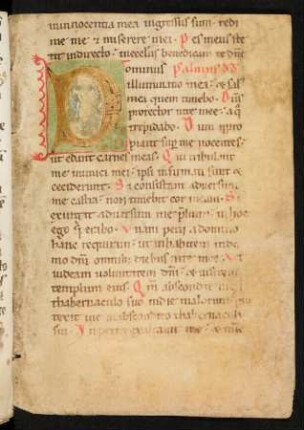 in innocentia mea ingressus sum redi
me me & miserere mei. Pes meus ste
tit in directo in eccl'iis benedicam te dn̄e
ominus Psalmus
illuminatio mea & sal
mei quem timebo. Dn̄s
protector uite mee a q
trepidabo. Dum appro
piant sup me nocentes
ut edant carnes meas. Qui tribulant
me inimici mei ipsi infirmati sunt &
ceciderunt. Si consistant aduersum
me castra non timebit cor meum. Si
exurgat aduersum me plium in hoc
ego sp erabo. Unam petii a domino
hanc requiram ut inhabitem in do
mo dn̄i omnib; diebus uite mee. Ut
uideam uoluntatem dn̄i & uisitem
templum eius. Qm̄ abscondit me
in thabernaculo suo in die malorum
texit me in abscondito thabernaculi
sui. In petra exaltauit me & nunc